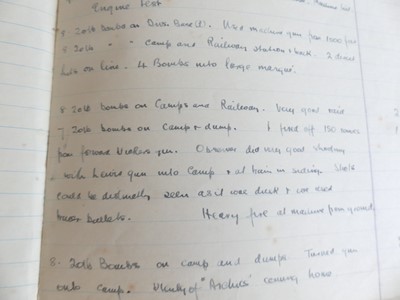 Engine test
8 20lb bombs on Divn. Base(?). Use machine gun from 1500 feet
8 20lb " " Camp and Railway station & back. 2 direct
hits on line. 4 Bombs into large marque.
8 20lb bombs on Camps and Railway. Very good raid
7 20lb bombs on Camp & dump. I fired off 150 rounds
from forward Vickers gun. Observer did very good shooting
with Lewis gun into Camp & at train in siding. Shots
could be distinctly seen as it was dusk & we used
Heavy fire of machine guns from ground
8. 20lb Bombs on camp and dumps. Turned gun
onto camp. Plenty of "Archies" coming home.